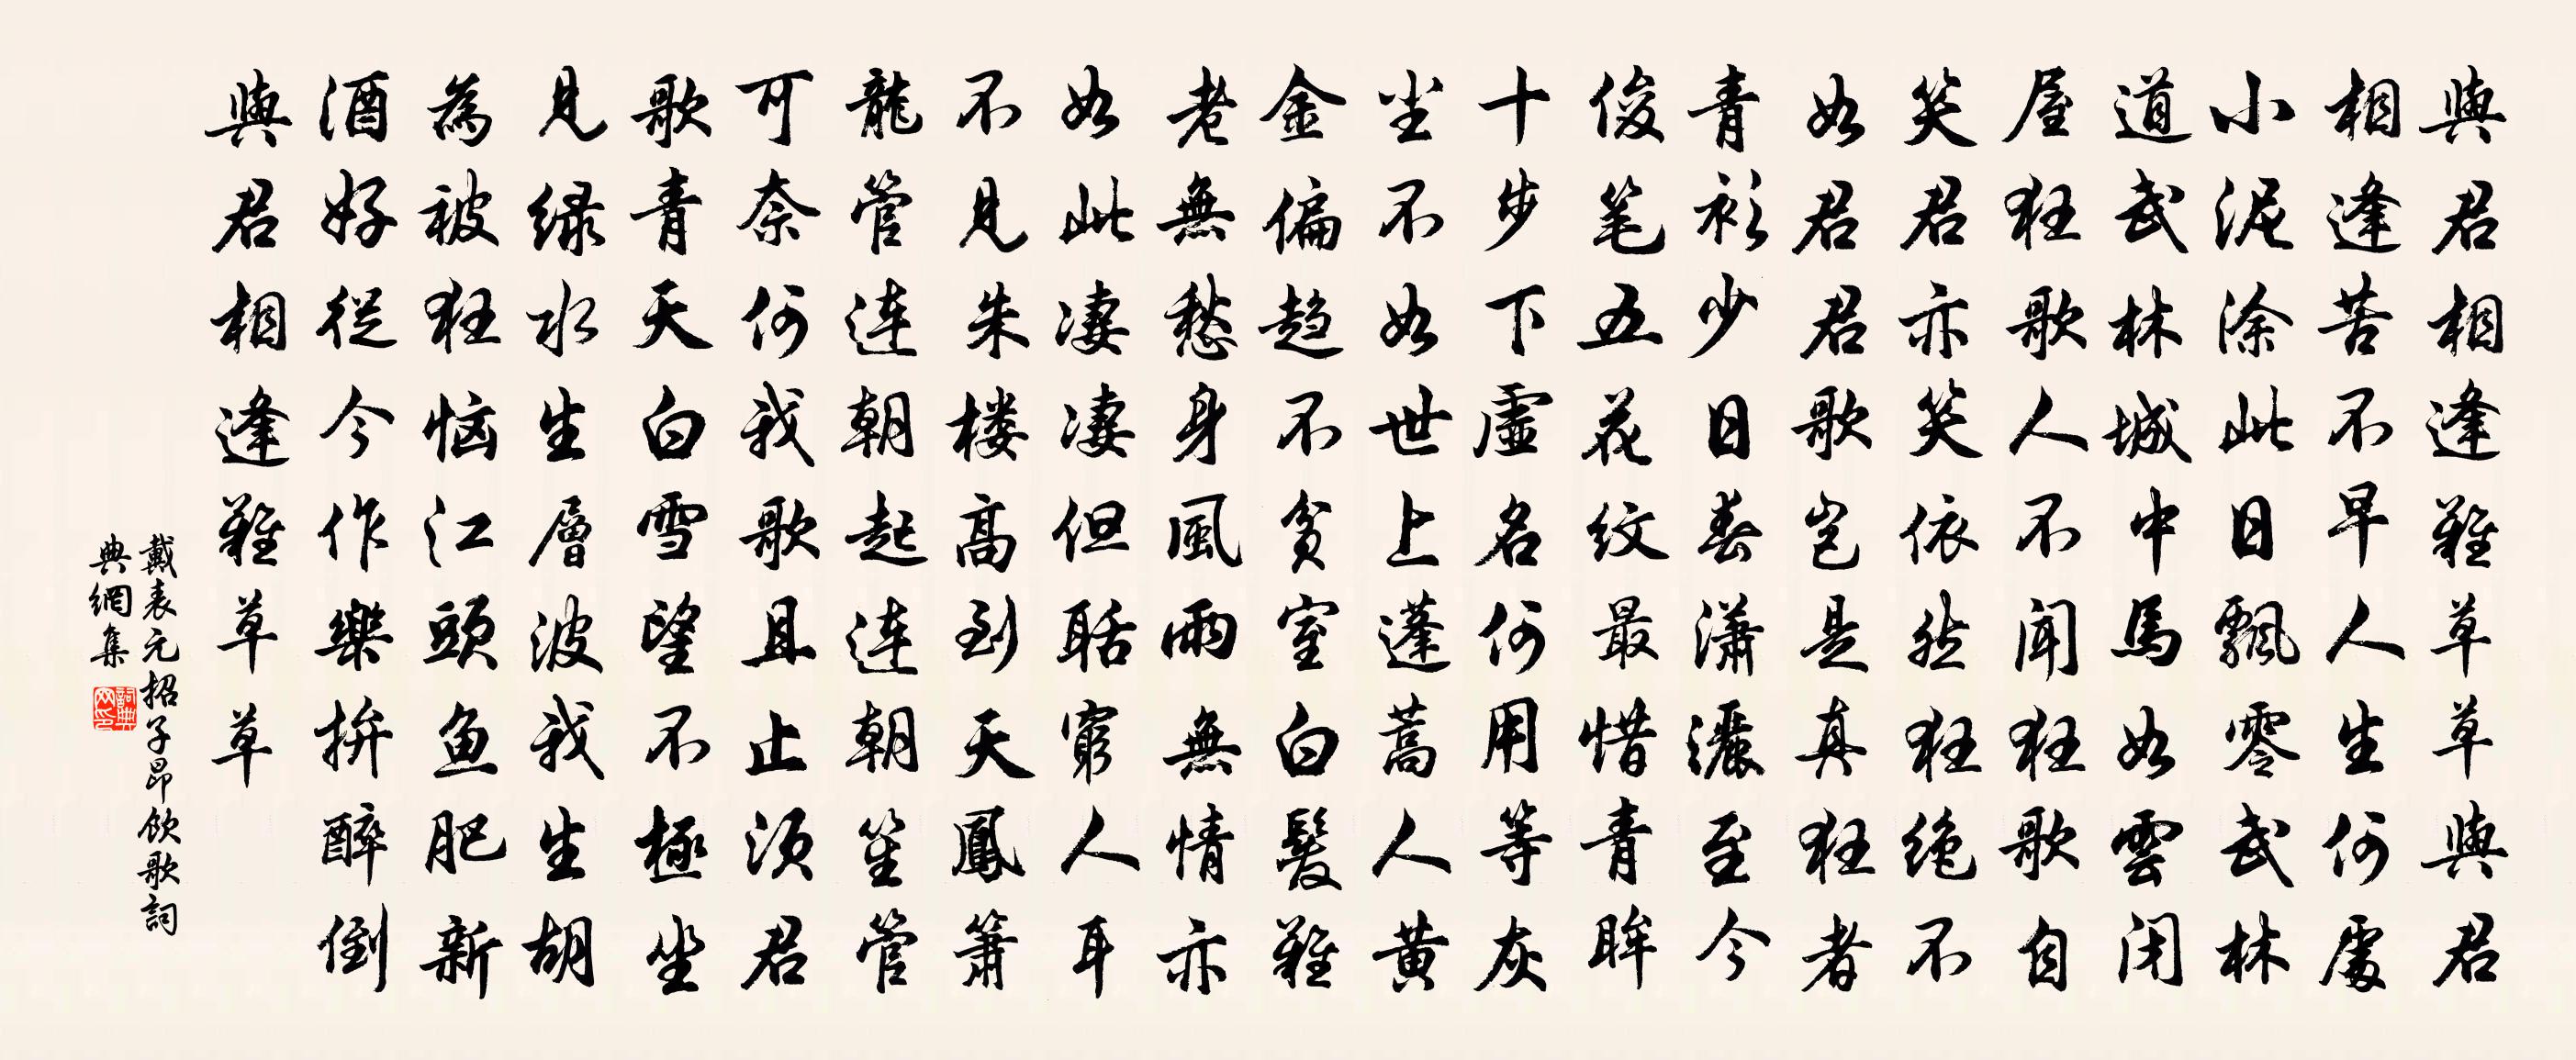 與君相逢難草草與君
相逢苦不早人生何處
小泥涂此日飄零武林
道武林城中馬如雲閉
屋狂歌人不聞狂歌自
笑君亦笑依然狂绝不
如君君歌岂是真狂者
青衫少日春潇灑至今
俊笔五花纹最惜青眸
十步下虛名何用等灰
尘不如世上蓬蒿人黄
金偏趋不贫室白髮難
老無愁身風雨無情亦
如此凄凄但聒窮人耳
不見朱楼高到天鳳簫
龍管连朝起连朝笙管
可奈何我歌且止須君
歌青天白雪望不極坐
見绿水生層波我生胡
為被狂恼江頭鱼肥新
酒好從今作樂拚醉倒
與君相逢難草草
戴表元招子昂飲歌詞
典網集
詞典网印